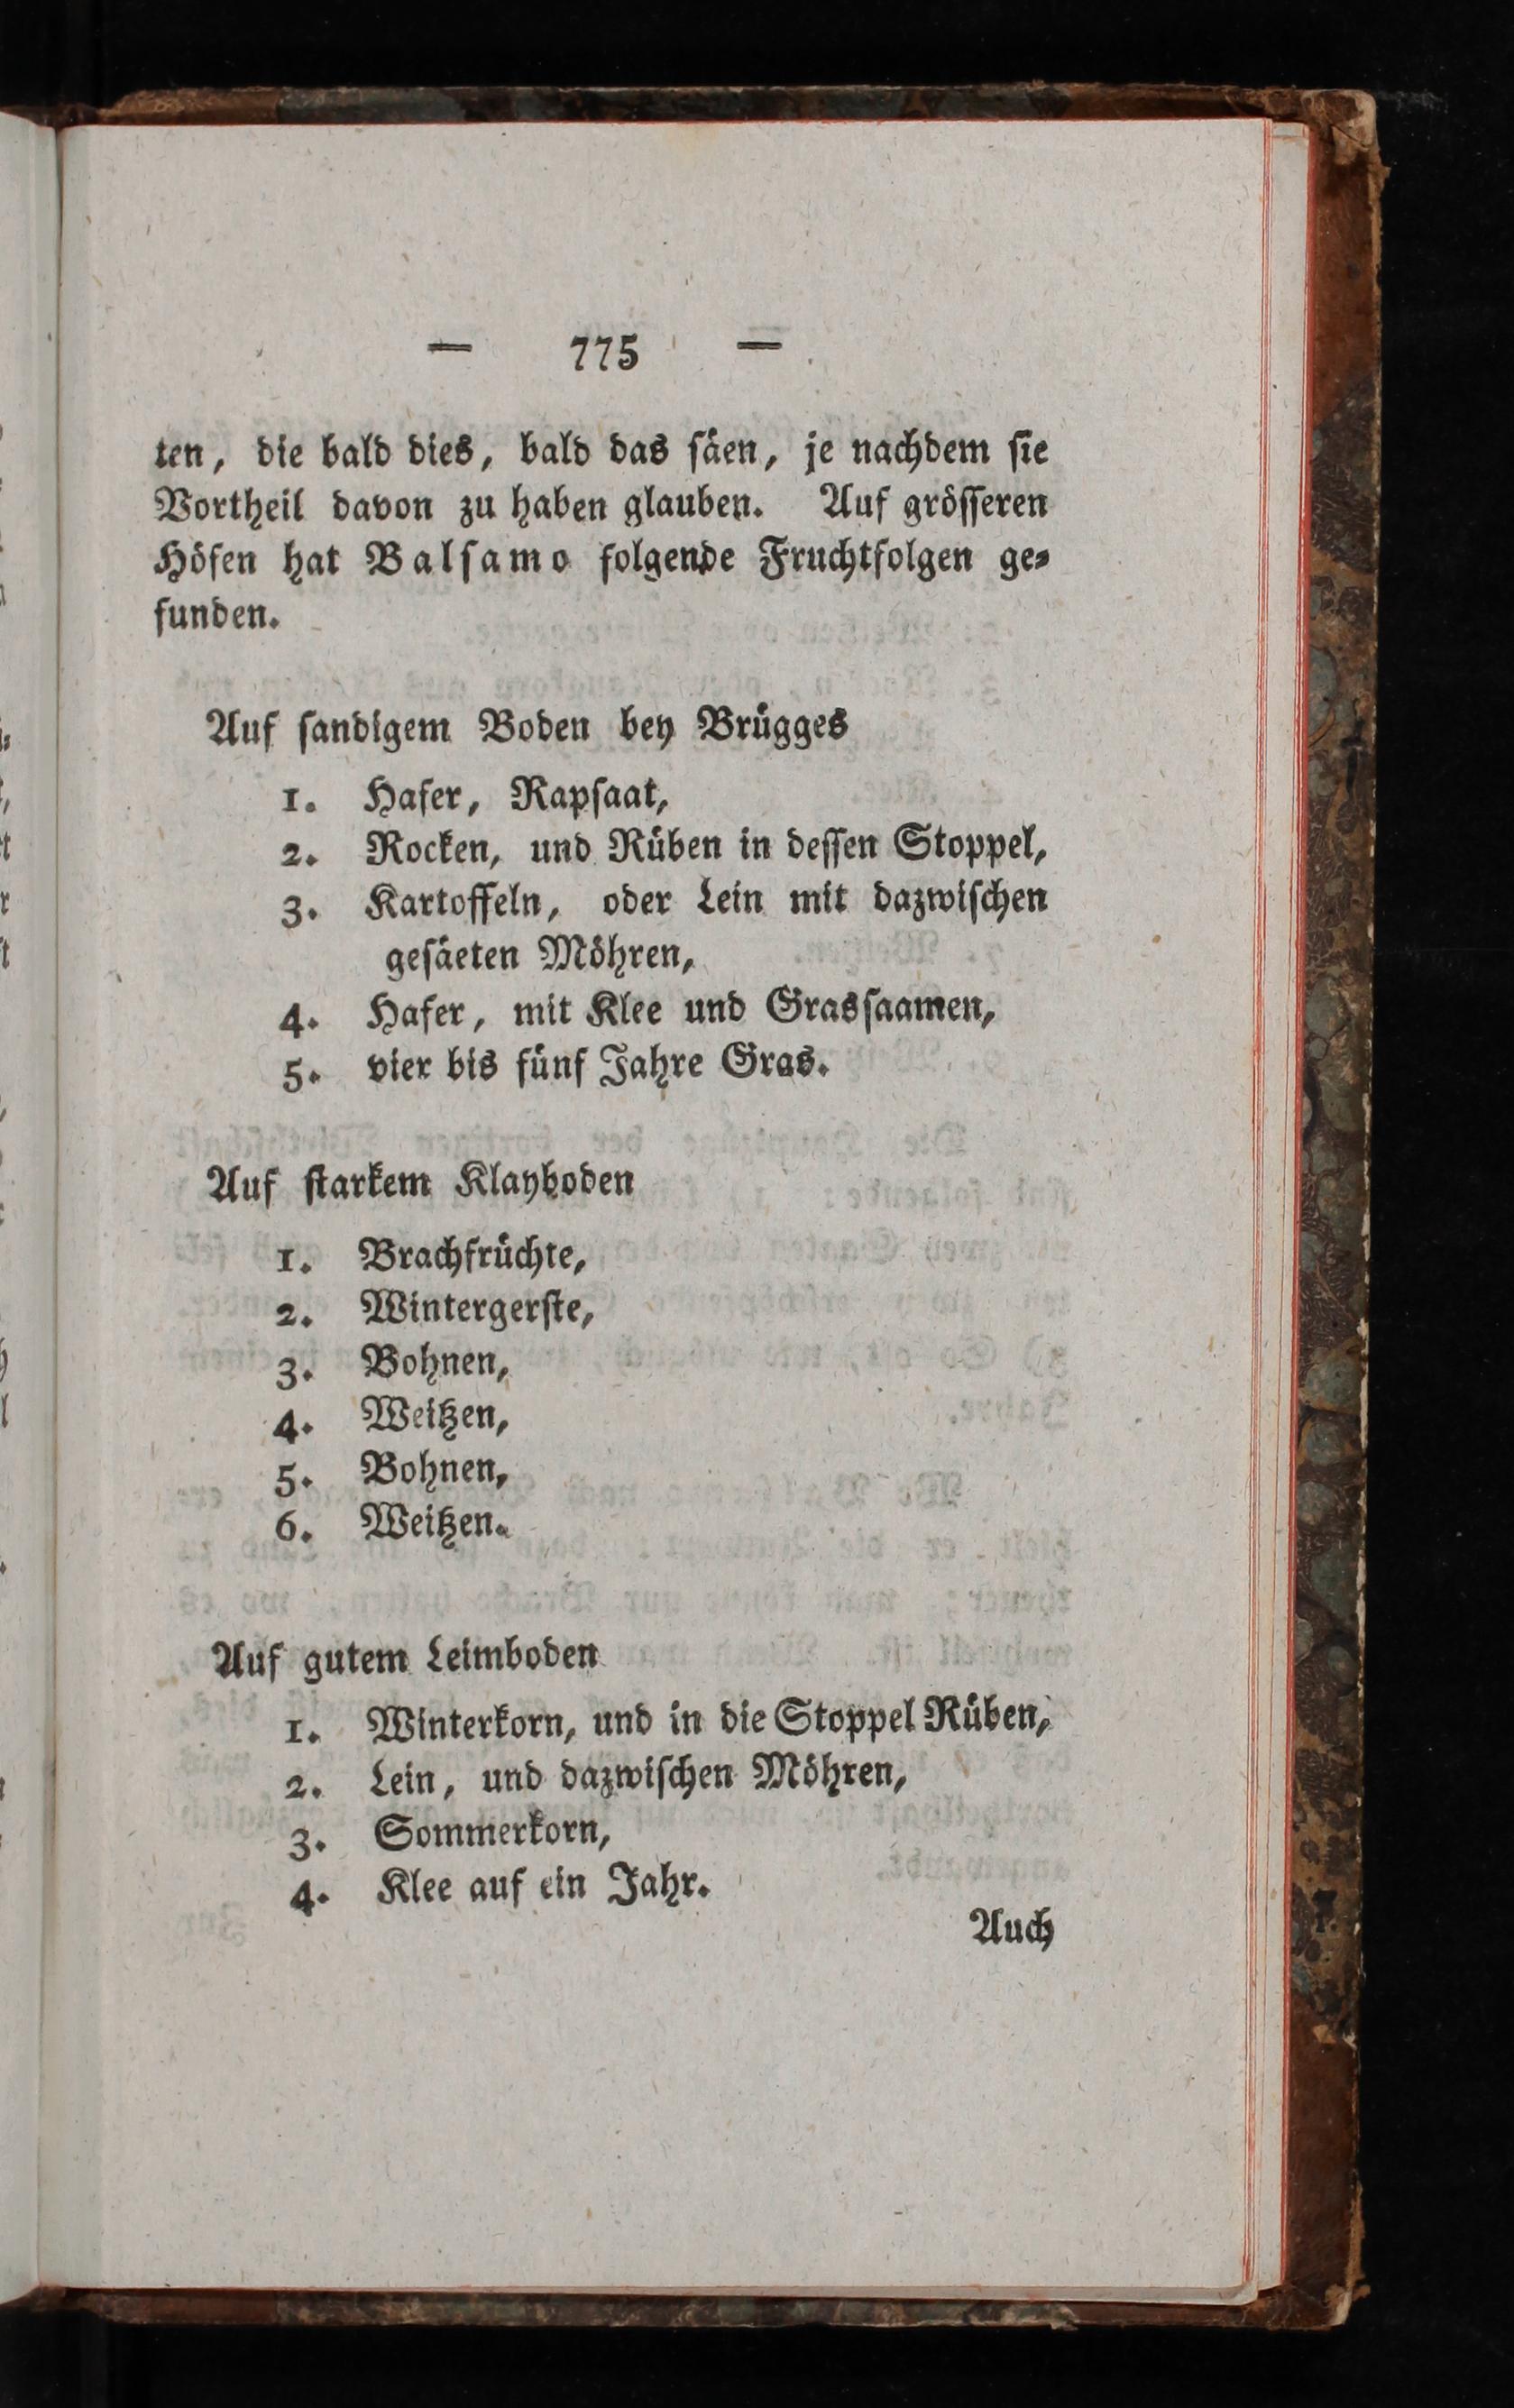 — 775 —
ten, die bald dies, bald das ſäen, je nachdem ſie
Vortheil davon zu haben glauben. Auf gröſſeren
Höfen hat Balſamo folgende Fruchtfolgen ge⸗
funden.
Auf ſandigem Boden bey Brügges
1. Hafer, Rapſaat,
2. Rocken, und Rüben in deſſen Stoppel,
3. Kartoffeln, oder Lein mit dazwiſchen
geſäeten Möhren,
4. Hafer, mit Klee und Grasſaamen,
5. vier bis fünf Jahre Gras.
Auf ſtarkem Klayboden
1. Brachfrüchte,
2. Wintergerſte,
3. Bohnen,
4. Weitzen,
5. Bohnen,
6. Weitzen.
Auf gutem Leimboden
1. Winterkorn, und in die Stoppel Rüben,
2. Lein, und dazwiſchen Möhren,
3. Sommerkorn,
4. Klee auf ein Jahr.
Auch